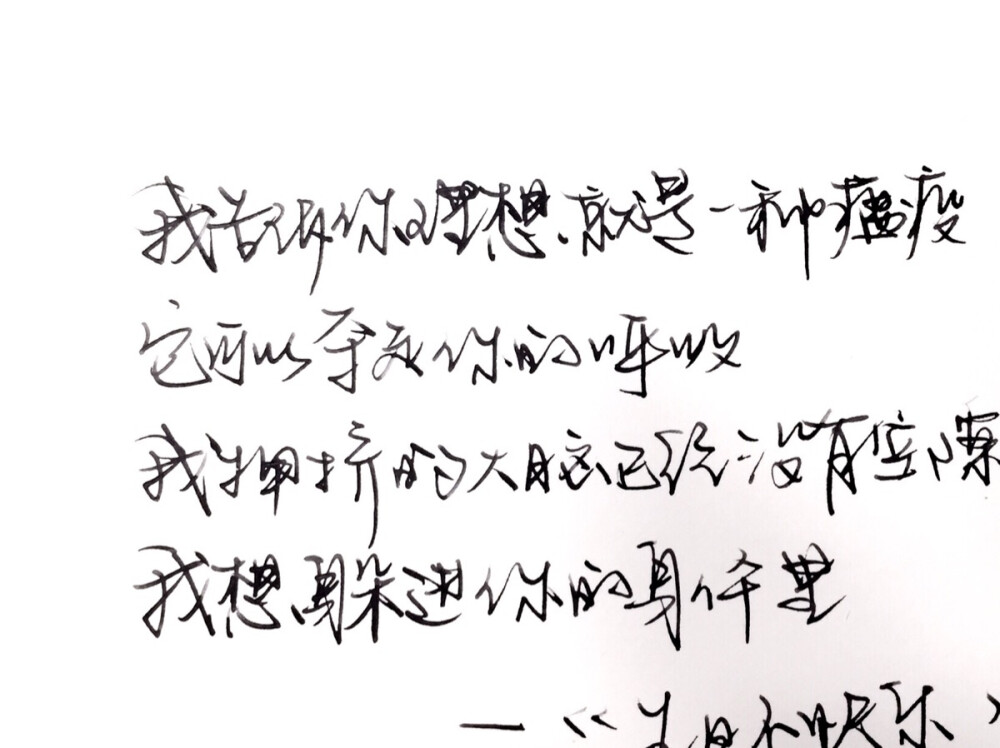 我告诉你理想就是一种瘟疫
它可以至死你的呼吸
我拥挤的大脑已经没有空隙
我想躲进你的身体里
—《生日不快乐》